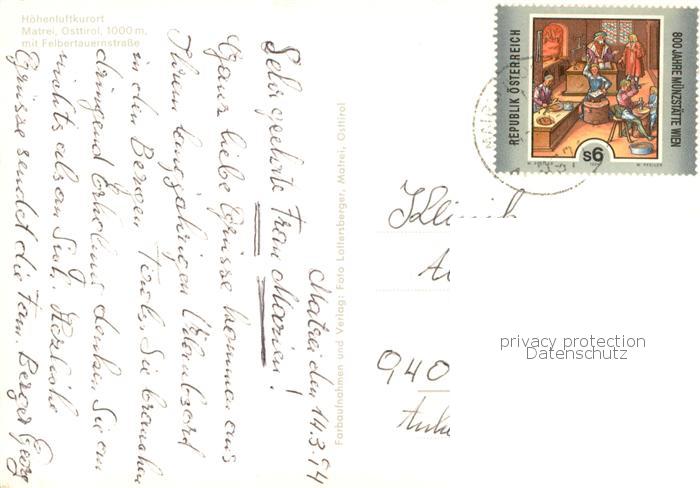 Höhenluftkurort
Matrei, Osttirol, 1000 m,
mit Felbertauernstraße
Matrei den 14.3.94
Sehr geehrte Frau Marien!
Ganz liebe Grüsse kommen aus
Ihrem langjährigen Urlaubsort
in den Bergen Tirols, Sie brauchen
dringend Erholung denken Sie an
nichts als an Sich. Herzliche
Grüsse sendet die Fam. Berger Georg
Farbaufnahmen und Verlag: Foto Lottersberger, Matrei, Osttirol
REPUBLIK ÖSTERREICH
800 JAHRE MÜNZSTÄTTE WIEN
S6
Klinik
940
privacy protection
Datenschutz